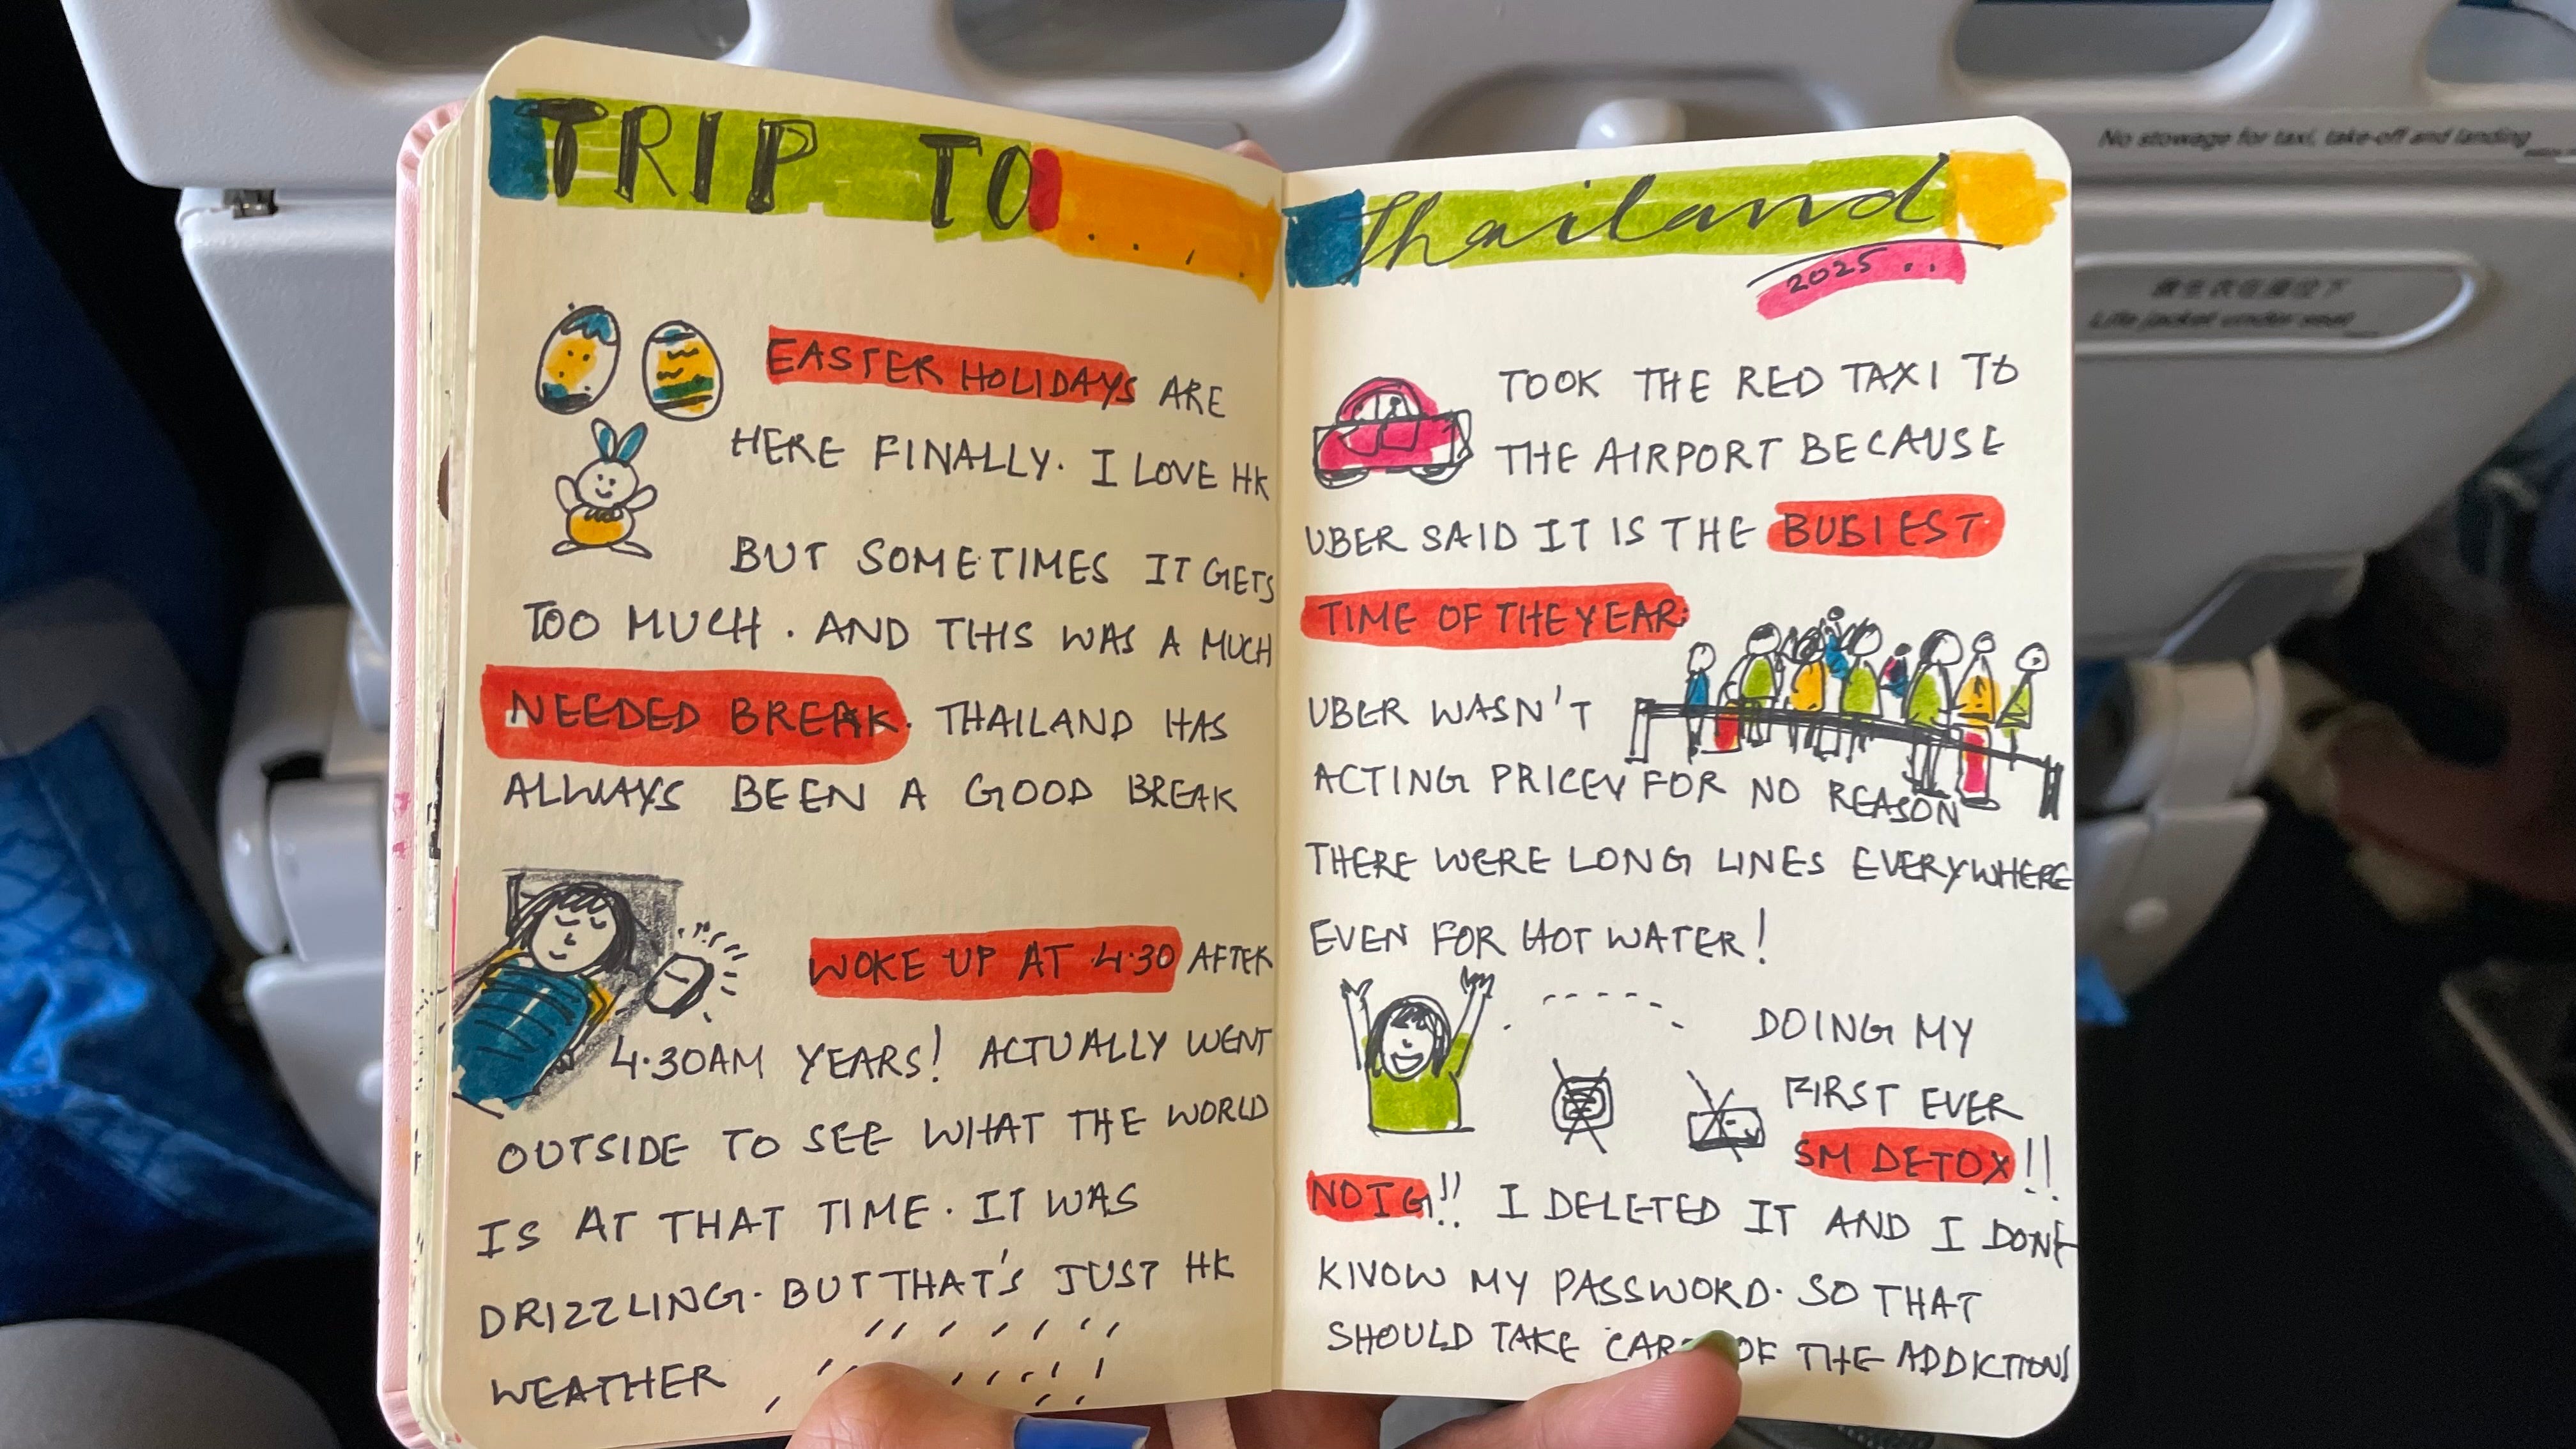 TRIP TO.....
EASTER HOLIDAYS ARE
HERE FINALLY. I LOVE HK
BUT SOMETIMES IT GETS
TOO MUCH. AND THIS WAS A MUCH
NEEDED BREAK. THAILAND HAS
ALWAYS BEEN A GOOD BREAK
WOKE UP AT 4.30 AFTER
4.30AM YEARS! ACTUALLY WENT
OUTSIDE TO SEE WHAT THE WORLD
IS AT THAT TIME. IT WAS
DRIZZLING. BUT THAT'S JUST HK
WEATHER
Thailand
2025..
TOOK THE RED TAXI TO
THE AIRPORT BECAUSE
UBER SAID IT IS THE BUSIEST
TIME OF THE YEAR.
UBER WASN'T
ACTING PRICEY FOR NO REASON
THERE WERE LONG LINES EVERYWHERE
EVEN FOR HOT WATER!
DOING MY
FIRST EVER
SM DETOX!!
NO IG!! I DELETED IT AND I DONT
KNOW MY PASSWORD. SO THAT
SHOULD TAKE CARE OF THE ADDICTIONS
No stowage for taxi, take-off and landing
救生衣在座位下
Life jacket under seat